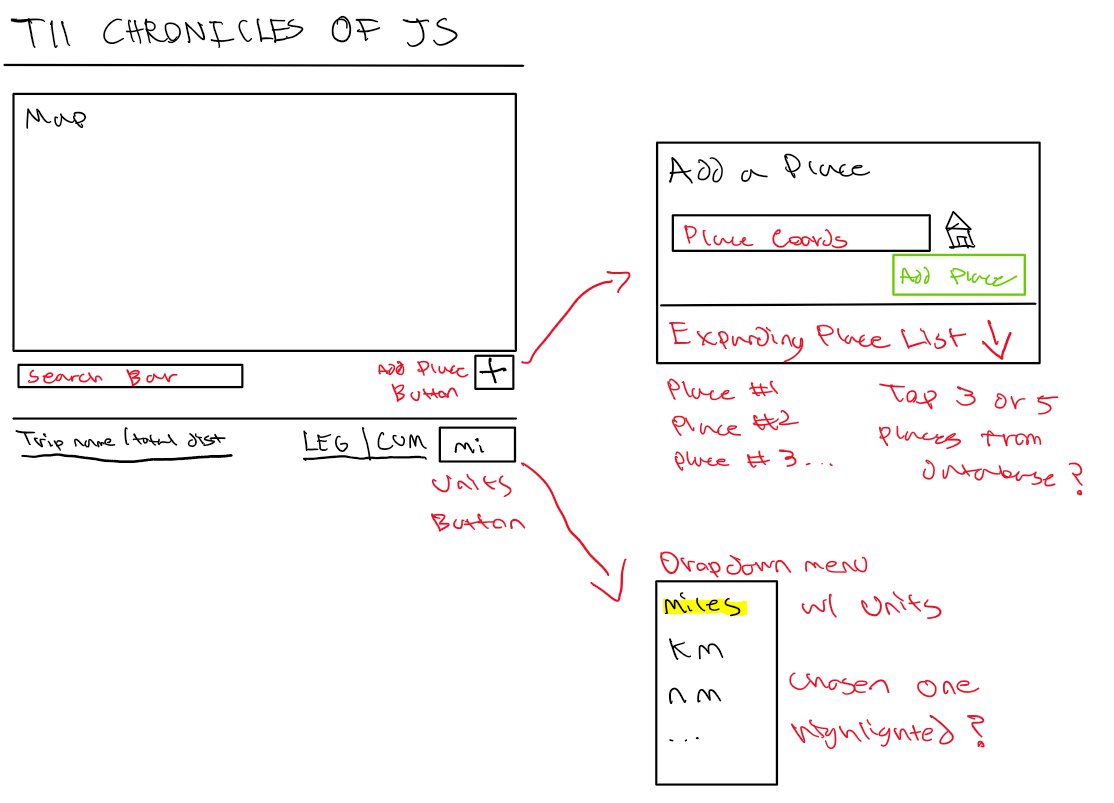 T11 CHRONICLES OF JS
Map
Search Bar
Add Place
Button
+
Trip name / total dist
LEG | CUM
mi
Units
Button
Add a Place
Place Coords
Add Place
Expanding Place List
Place #1
Place #2
place # 3...
Top 3 or 5
places from
Database?
Dropdown menu
w/ Units
miles
km
nm
...
Chosen one
highlighted?